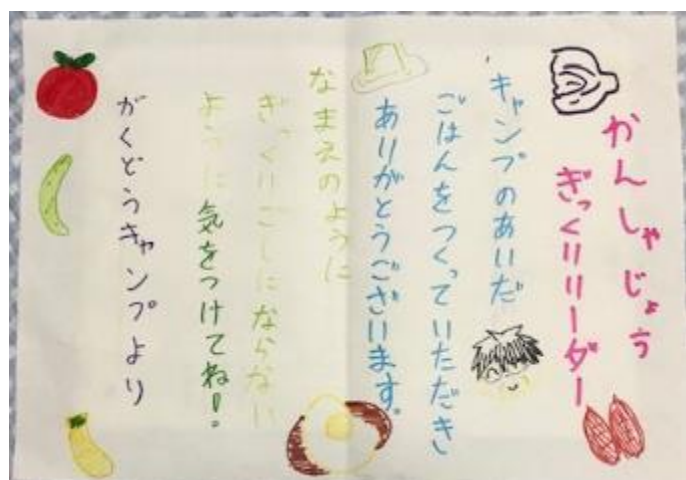 かんしゃじょう
ぎっくりリーダー
キャンプのあいだ
ごはんをつくっていただき
ありがとうございます。
なまえのように
ぎっくりごしにならない
ように気をつけてね!。
がくどうキャンプより